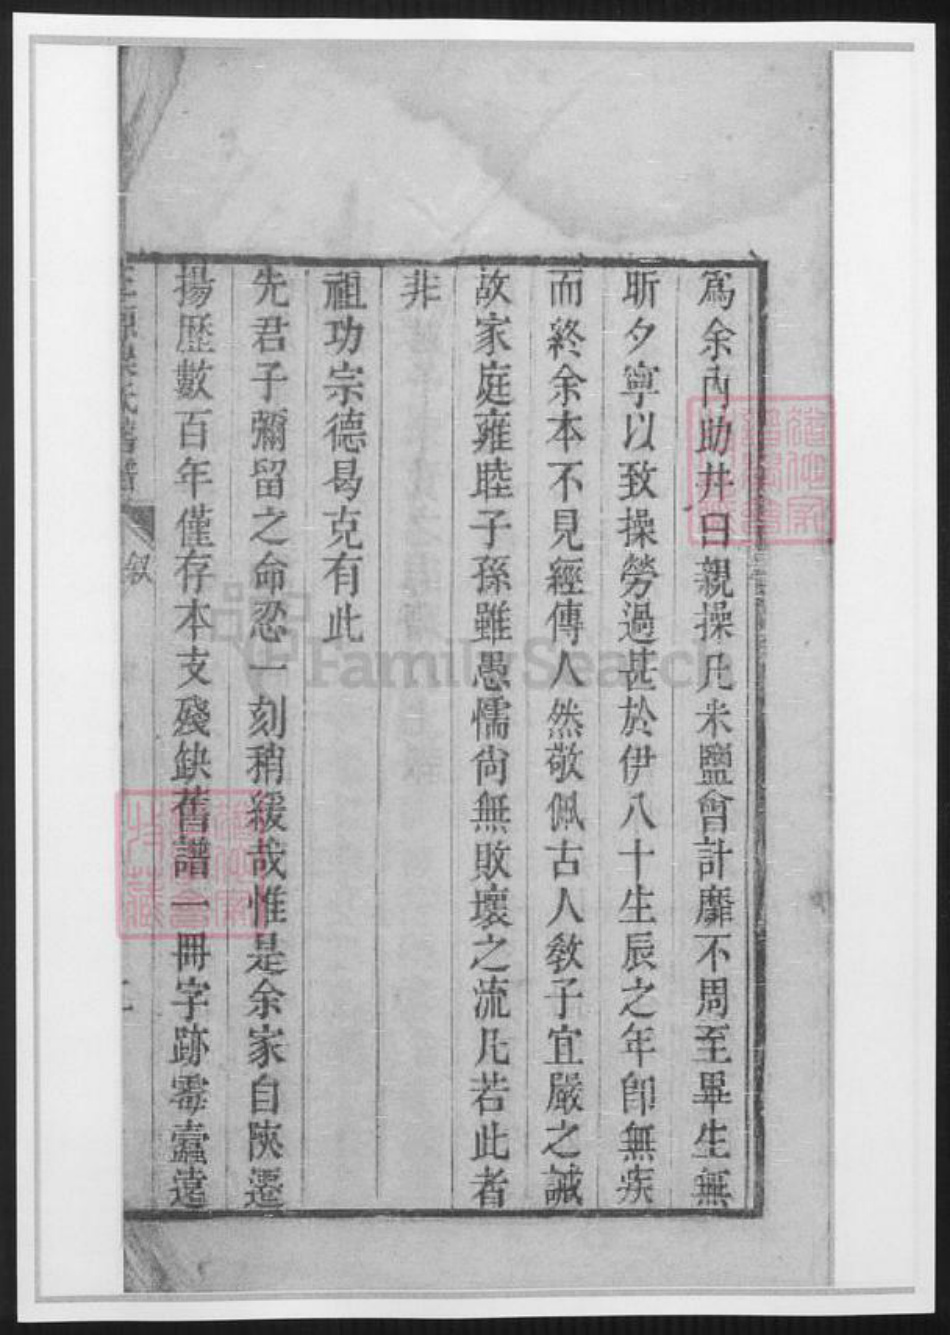 爲余內助井臼親操凡米鹽會計靡不周至畢生無
昕夕寧以致操勞過甚於伊八十生辰之年卽無疾
而終余本不見經傳人然敬佩古人教子宜嚴之誡
故家庭雍睦子孫雖愚懦尙無敗壞之流凡若此者
非
祖功宗德曷克有此
先君子彌留之命忍一刻稍緩哉惟是余家自陝遷
揚歷數百年僅存本支殘缺舊譜一冊字跡霉蠹遠
氏舊譜
叙
二
FamilySearch